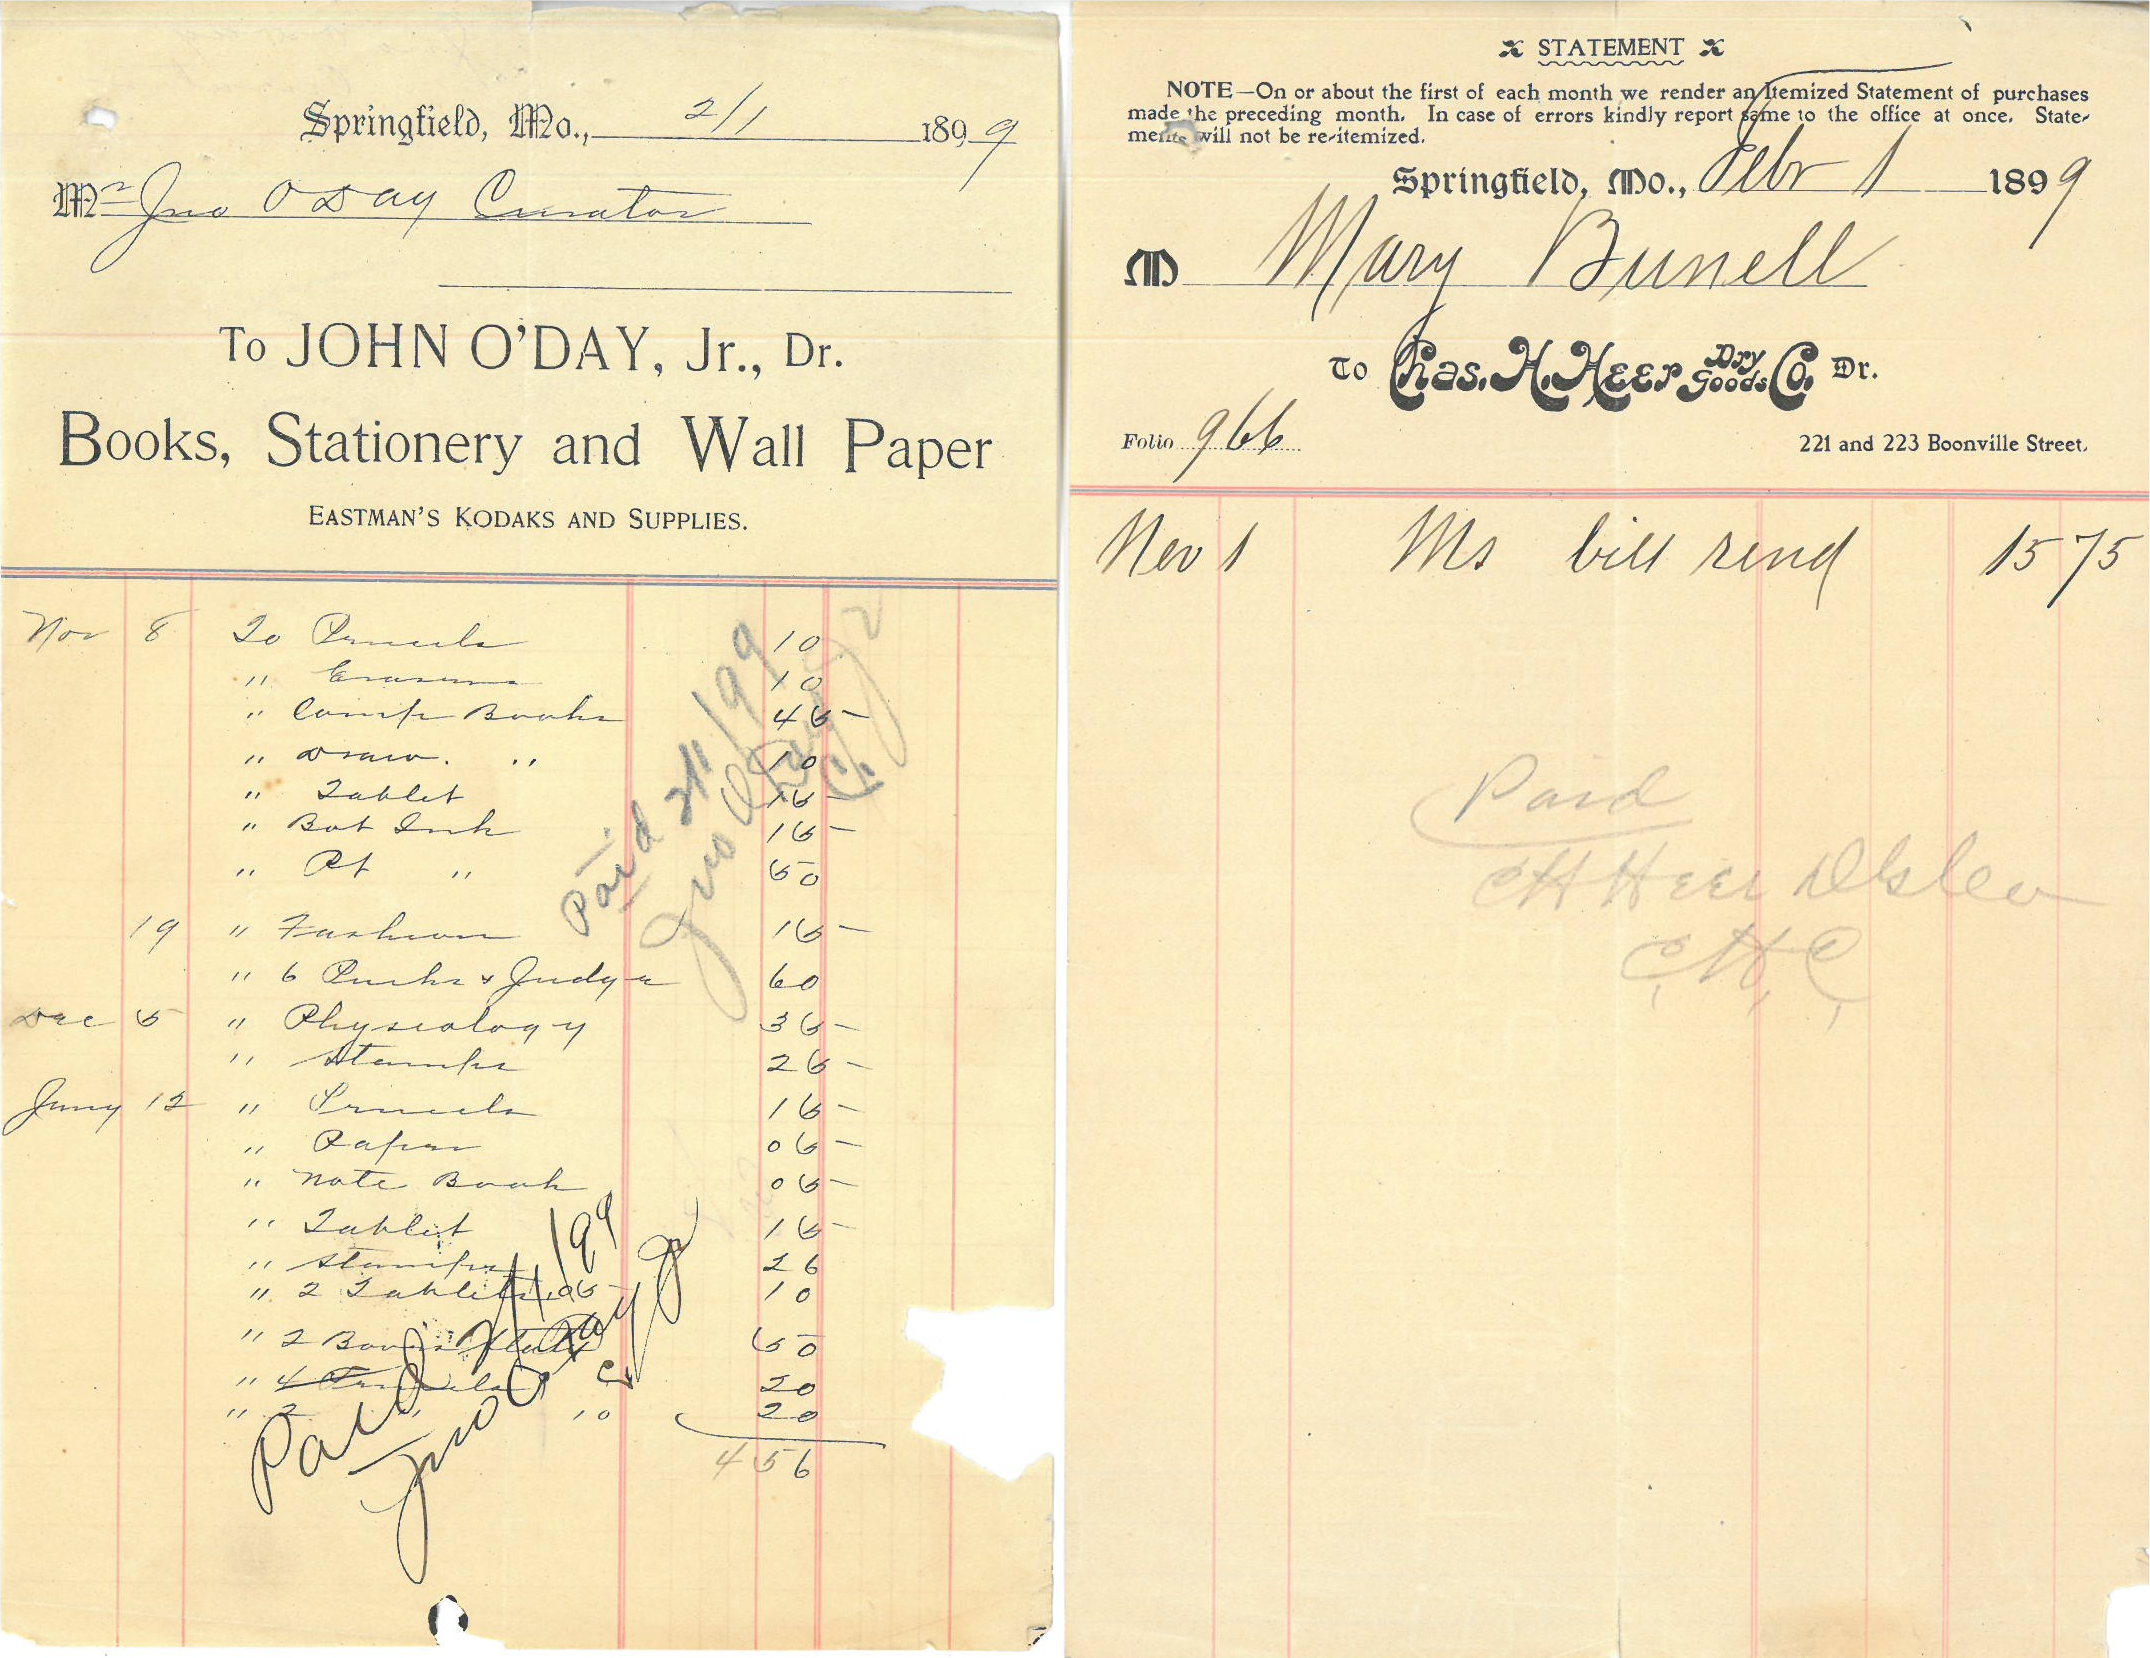 Springfield, Mo., 2/1 1899
Mr Jno O'Day Curator
To JOHN O'DAY, Jr., Dr.
Books, Stationery and Wall Paper
EASTMAN'S KODAKS AND SUPPLIES.
Nov 8 To Pencils 10
" Erasers 10
" Comp Books 45
" Draw. " 10
" Tablet 15
" Bot Ink 15
" Pt " 50
19 " Fashion 15
" 6 Punks & Judys 60
Dec 5 " Physiology 35
" Stamps 25
Jany 12 " Pencils 15
" Paper 05
" Note Book 05
" Tablet 15
" Stamps 26
" 2 Tablets .05 10
" 2 50
" 4 Pencils 20
" 2 " 10 20
4 56
Paid 2/1/99
Jno O'Day Jr
Paid 2/1/99
Jno O'Day Jr
STATEMENT
NOTE—On or about the first of each month we render an Itemized Statement of purchases
made the preceding month. In case of errors kindly report same to the office at once. State-
ments will not be re-itemized.
Springfield, Mo., Febr 1 1899
M Mary Bunell
To Chas. H. Heer Dry Goods Co. Dr.
Folio 966
221 and 223 Boonville Street.
Nov 1 Ms bill rend 15 75
Paid
C H Heer
C.H.C.